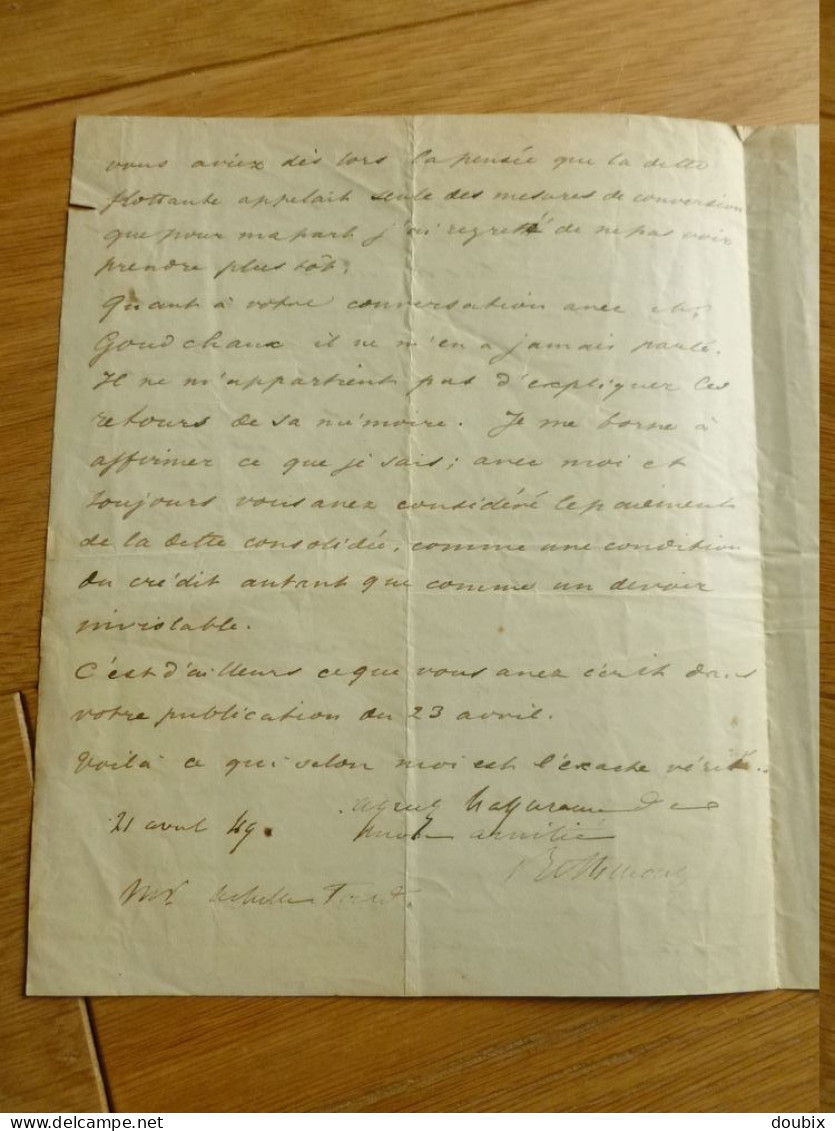 vous aviez dès lors la pensée que la dette
flottante appelait seule des mesures de conversion
que pour ma part j'ai regretté de ne pas voir
prendre plus tôt.
Quant à votre conversation avec Mr
Goudchaux il ne m'en a jamais parlé.
Il ne m'appartient pas d'expliquer les
retours de sa mémoire. Je me borne à
affirmer ce que je sais; avec moi et
toujours vous avez considéré le paiement
de la dette consolidée, comme une condition
du crédit autant que comme un devoir
inviolable.
C'est d'ailleurs ce que vous avez écrit dans
votre publication du 23 avril.
Voilà ce qui selon moi est l'exacte vérité.
agréez l'assurance de
amitié
21 avril 49.
Mr Achille Fould.
DELCAMPE.NET
doubix